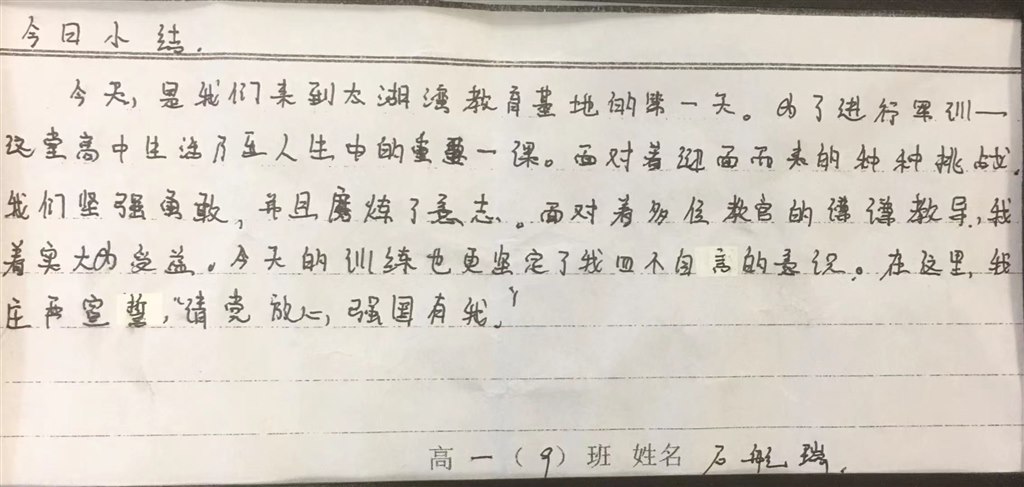 今日小结.
今天,是我们来到太湖湾教育基地的第一天。为了进行军训一
这堂高中生活乃至人生中的重要一课。面对着迎面而来的种种挑战.
我们坚强勇敢,并且磨炼了意志。面对着多位教官的谆谆教导,我
着实大为受益。今天的训练也更坚定了我四不自言的意识。在这里,我
庄再宣誓,“请党放心,强国有我。”
高一(9)班 姓名 石航瑞.